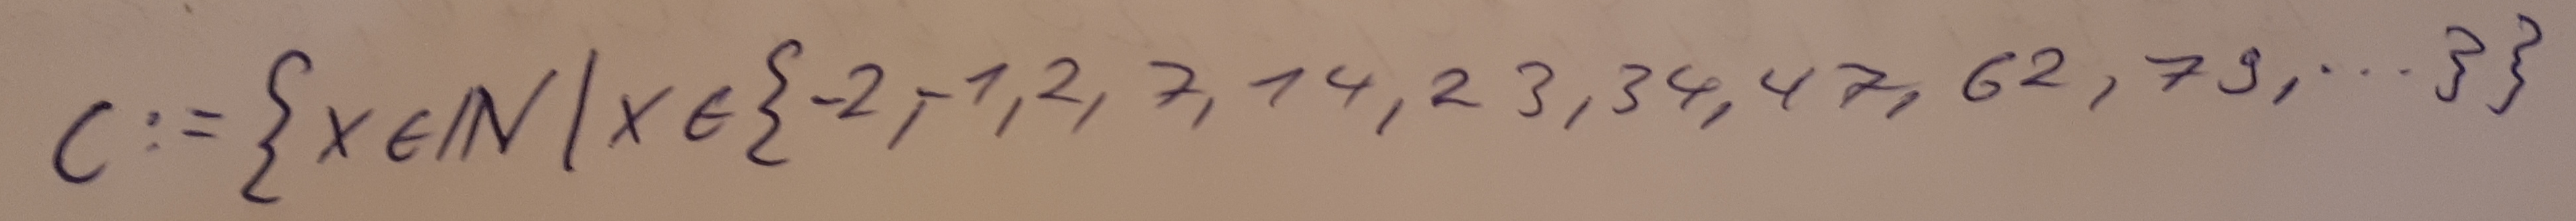 C:={x∈ℕ|x∈{-2,-1,2,7,14,23,34,47,62,79,...}}